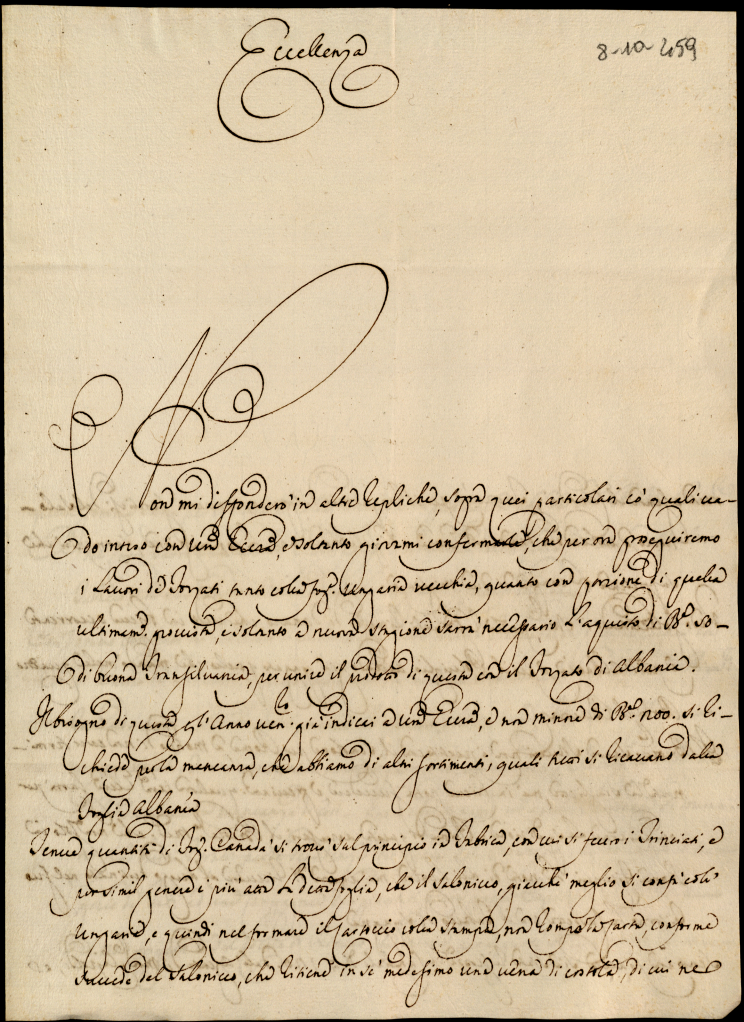 Eccellenza
8-10-459
Non mi diffonderò in altre repliche, sopra quei particolari co' quali va-
do inteso con Vra Eccza, e soltanto giovami confermarle, che per ora proseguiremo
i Lavori de Forzati tanto colla fog.a Ungaria vecchia, quanto con porzione di quella
ultimam.e provista, e soltanto a nuova stagione sarrà necessario l'aquisto di B.e 50-
di buona Transilvania, per unire il prodotto di questa con il Forzato di Albania.
Il bisogno di questa p l'Anno ven.to già indicai a Vra Eccza, e non minore di B.e 200. si ri-
chiede per la mancanza, che abbiamo di altri sortimenti, quali tutti si ricavano dalla
foglia Albania
Tenue quantità di fog.a Canada si trovò sul principio in Fabrica, con cui si fecero i Trinciati, e
per simil genere è più atta la detta foglia, che il Salonicco, giacchè meglio si confà coll'
Ungaria, e quindi nel formare il cartoccio colla stampa, non rompe la carta, conforme
succede del Salonicco, che ritiene in se medesimo una vena di costola, di cui ne